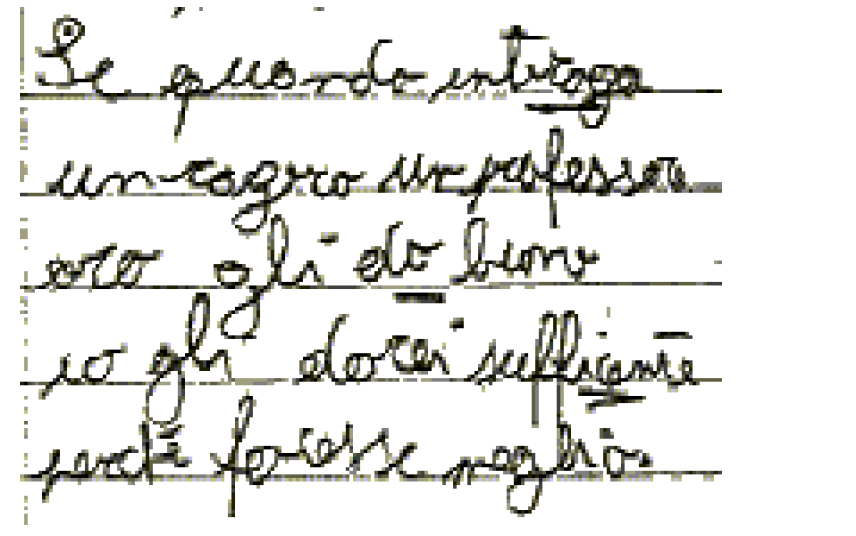 Se quando introga
un ragzro un professore
oro gli do buono
io gli dorei sufficente
perchè facesse meglio.